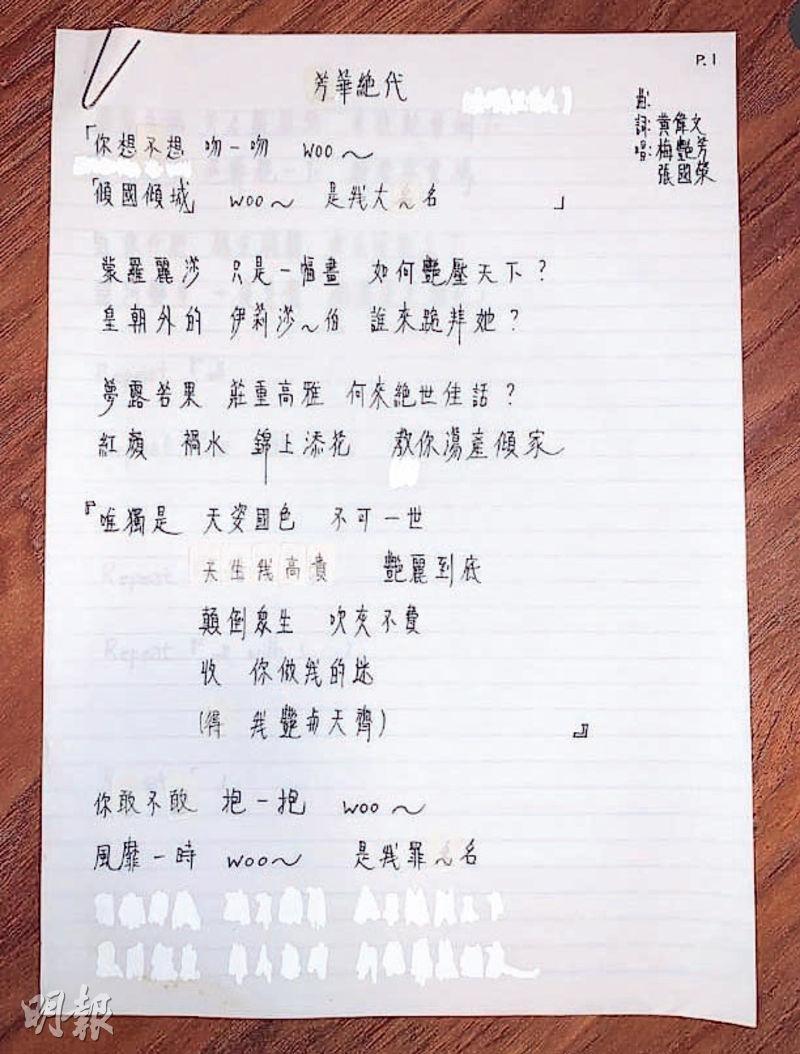 P.1
芳華絶代
曲:
詞: 黃偉文
唱: 梅艷芳
張國榮
「你想不想 吻一吻 woo~
「傾國傾城」 woo~ 是我大~名 」
蒙羅麗莎 只是一幅畫 如何艷壓天下?
皇朝外的 伊莉莎~伯 誰來跪拜她?
夢露若果 莊重高雅 何來絶世佳話?
紅顏 禍水 錦上添花 教你蕩產傾家
『唯獨是 天姿國色 不可一世
天生我高貴 艷麗到底
顛倒眾生 吹灰不費
收 你做我的迷
(得 我艷與天齊) 』
你敢不敢 抱一抱 woo~
風靡一時 woo~ 是我罪~名
明報